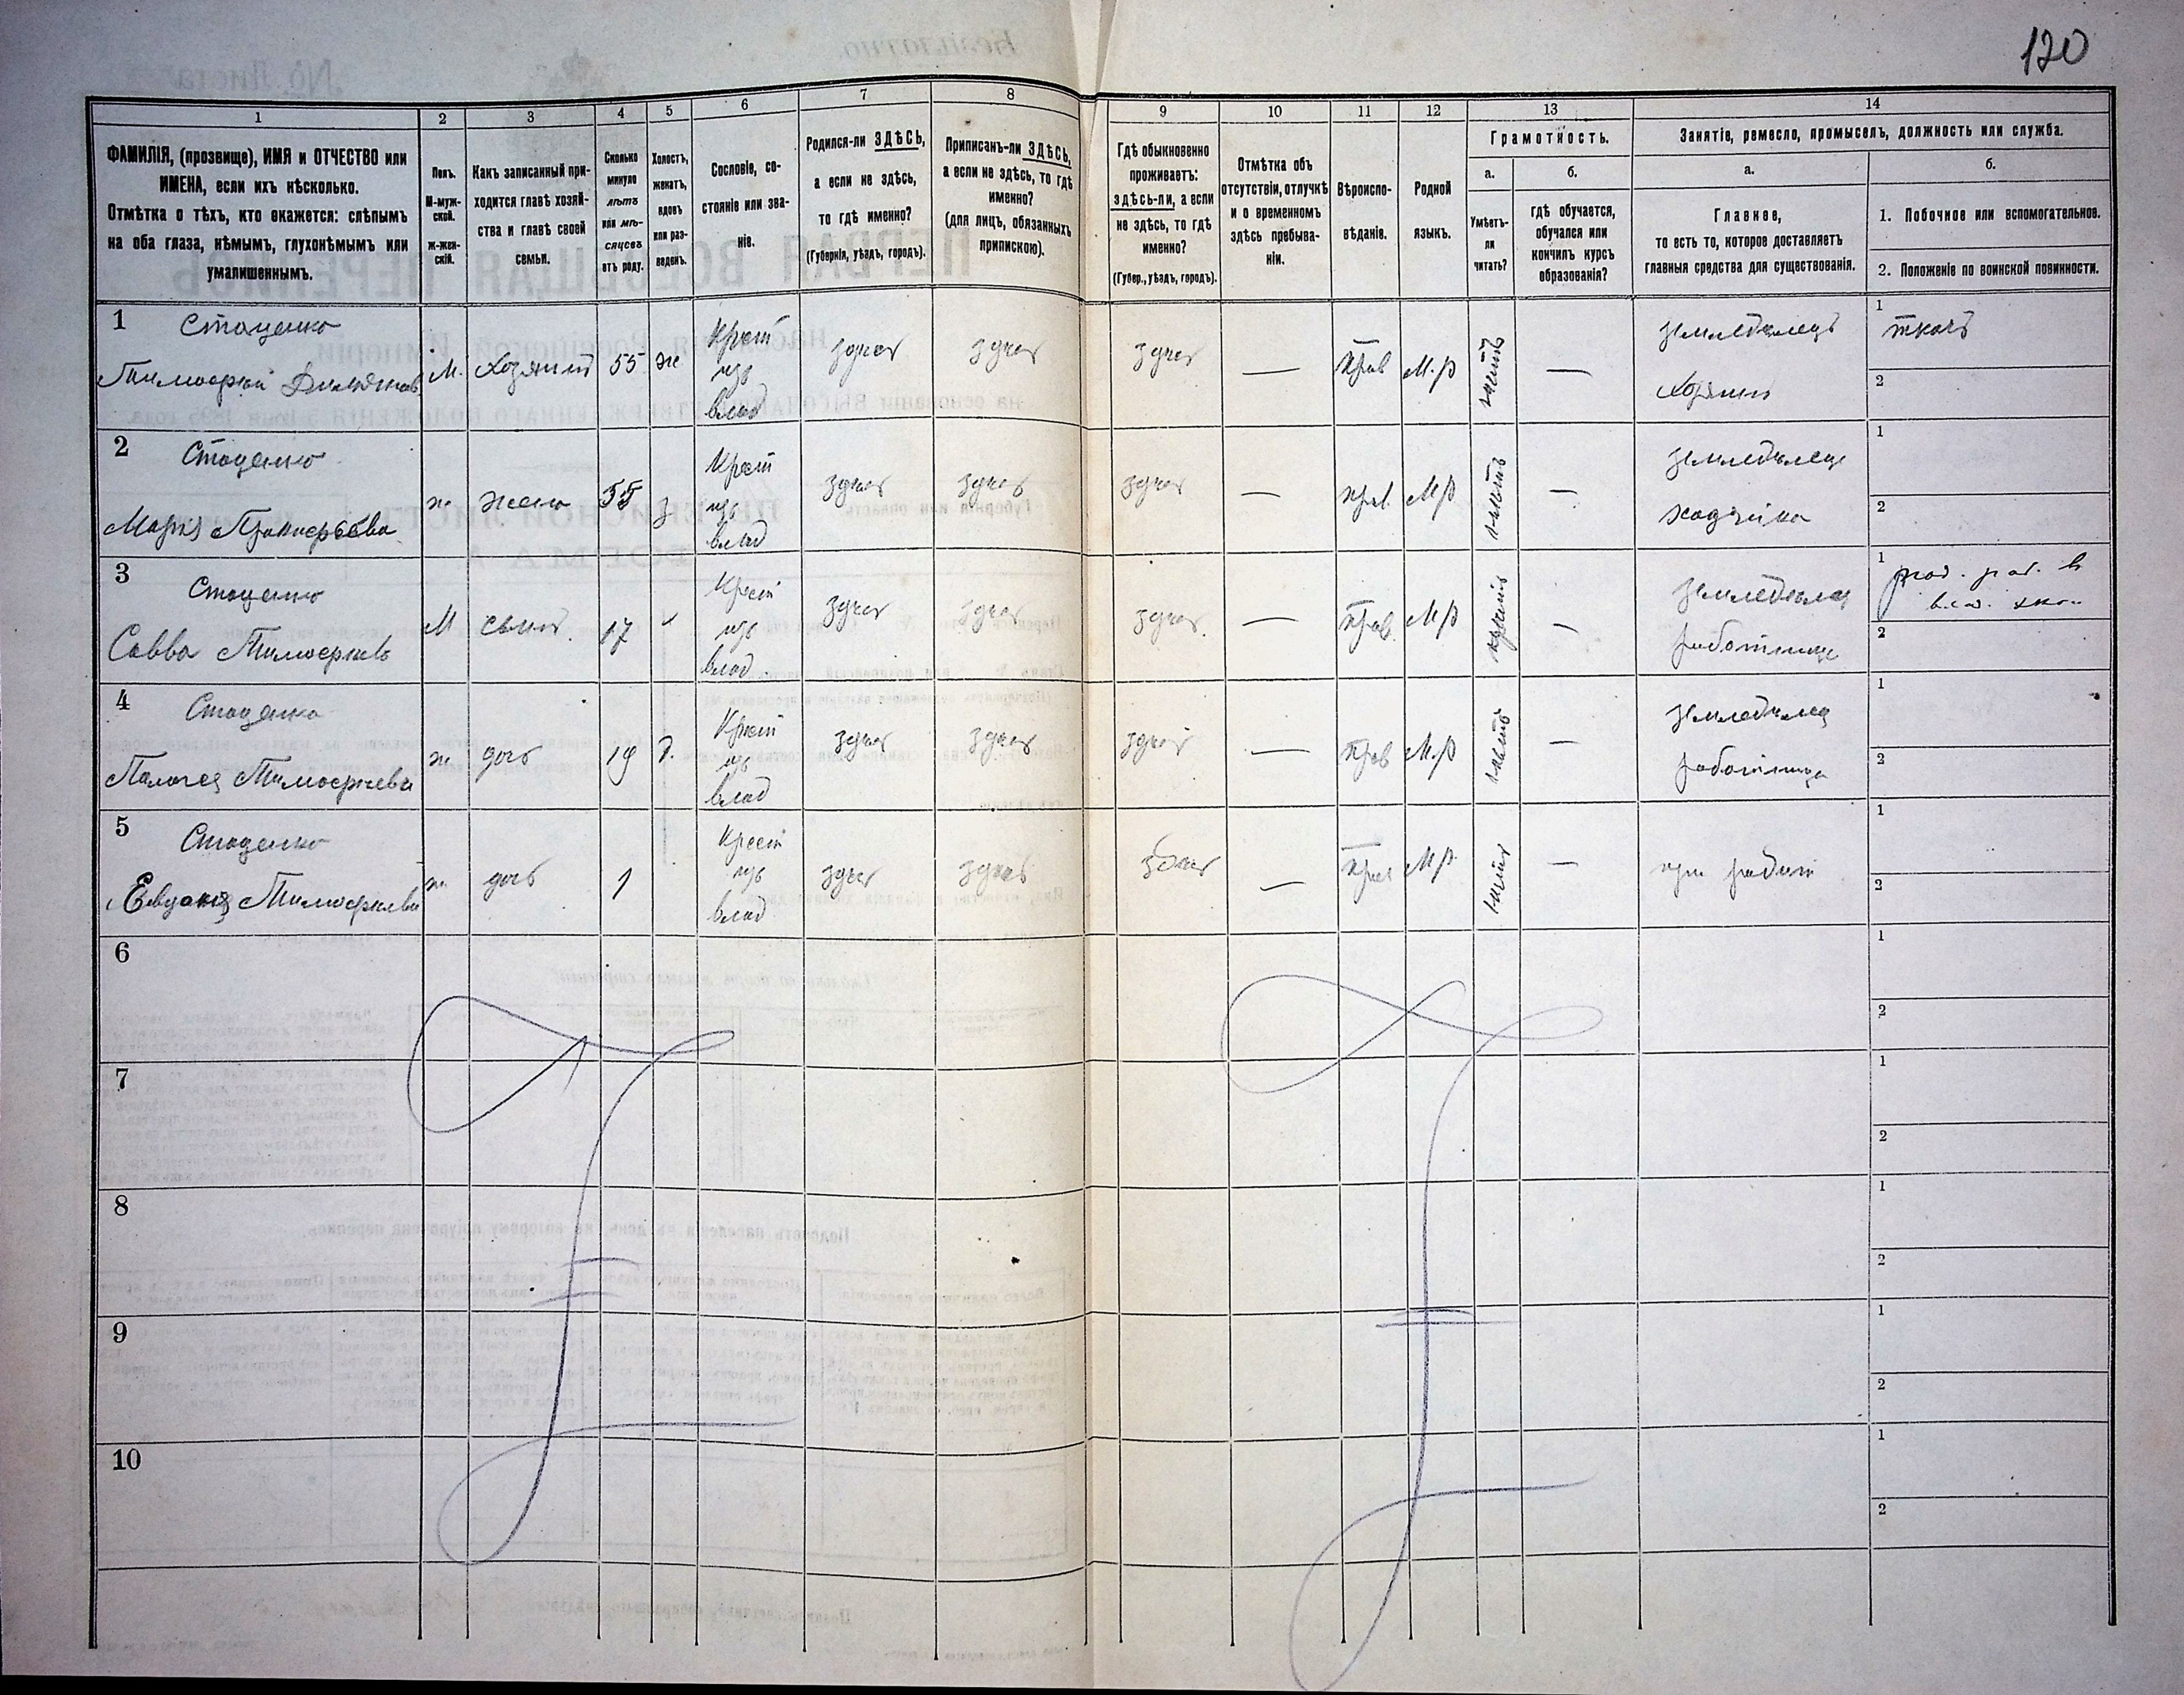 120
1 2 3 4 5 6 7 8 9 10 11 12 13 14
ФАМИЛІЯ, (прозвище), ИМЯ и ОТЧЕСТВО или
ИМЕНА, если ихъ нѣсколько.
Отмѣтка о тѣхъ, кто окажется: слѣпымъ
на оба глаза, нѣмымъ, глухонѣмымъ или
умалишеннымъ.
Полъ.
М-муж-
ской.
Ж-жен-
скій.
Какъ записанный при-
ходится главѣ хозяй-
ства и главѣ своей
семьи.
Сколько
минуло
лѣтъ
или мѣ-
сяцевъ
отъ роду.
Холостъ,
женатъ,
вдовъ
или раз-
веденъ.
Сословіе, со-
стояніе или зва-
ніе.
Родился-ли ЗДѢСЬ,
а если не здѣсь,
то гдѣ именно?
(Губернія, уѣздъ, городъ).
Приписанъ-ли ЗДѢСЬ,
а если не здѣсь, то гдѣ
именно?
(для лицъ, обязанныхъ
припискою).
Гдѣ обыкновенно
проживаетъ:
здѣсь-ли, а если
не здѣсь, то гдѣ
именно?
(Губер., уѣздъ, городъ).
Отмѣтка объ
отсутствіи, отлучкѣ
и о временномъ
здѣсь пребыва-
ніи.
Вѣроиспо-
вѣданіе.
Родной
языкъ.
Грамотность.
а.
Умѣетъ-
ли
читать?
б.
гдѣ обучается,
обучался или
кончилъ курсъ
образованія?
Занятіе, ремесло, промыселъ, должность или служба.
а.
Главное,
то есть то, которое доставляетъ
главныя средства для существованія.
б.
1. Побочное или вспомогательное.
2. Положеніе по воинской повинности.
1 Стоценко
Тимофей
М. Хозяинъ 55 ж
Крест
изъ
влад
здесь здесь здесь — Прав М.р нетъ —
земледелецъ
хозяинъ
1 ткачъ
2
2 Стоценко
Марія Прокофьева
ж жена 55 з
Крест
изъ
влад
здесь здесь здесь — прав. М.р нетъ —
земледелец
хозяйка
1
2
3 Стоценко
Савва Тимофеевъ
М сынъ. 17
Крест
изъ
влад
здесь здесь здесь. — Прав. М.р —
земледелец
работница
1
2
4 Стоценко
Палагея Тимофеева
ж дочь 19 д.
Крест
изъ
влад
здесь здесь здесь — Прав М.р нетъ —
земледелец
работница
1
2
5 Стоценко
Евдокія Тимофеева
ж дочь 1
Крест
изъ
влад
здесь здесь здесь — Прав М.р нетъ —
при
1
2
6
1
2
7
1
2
8
1
2
9
1
2
10
1
2